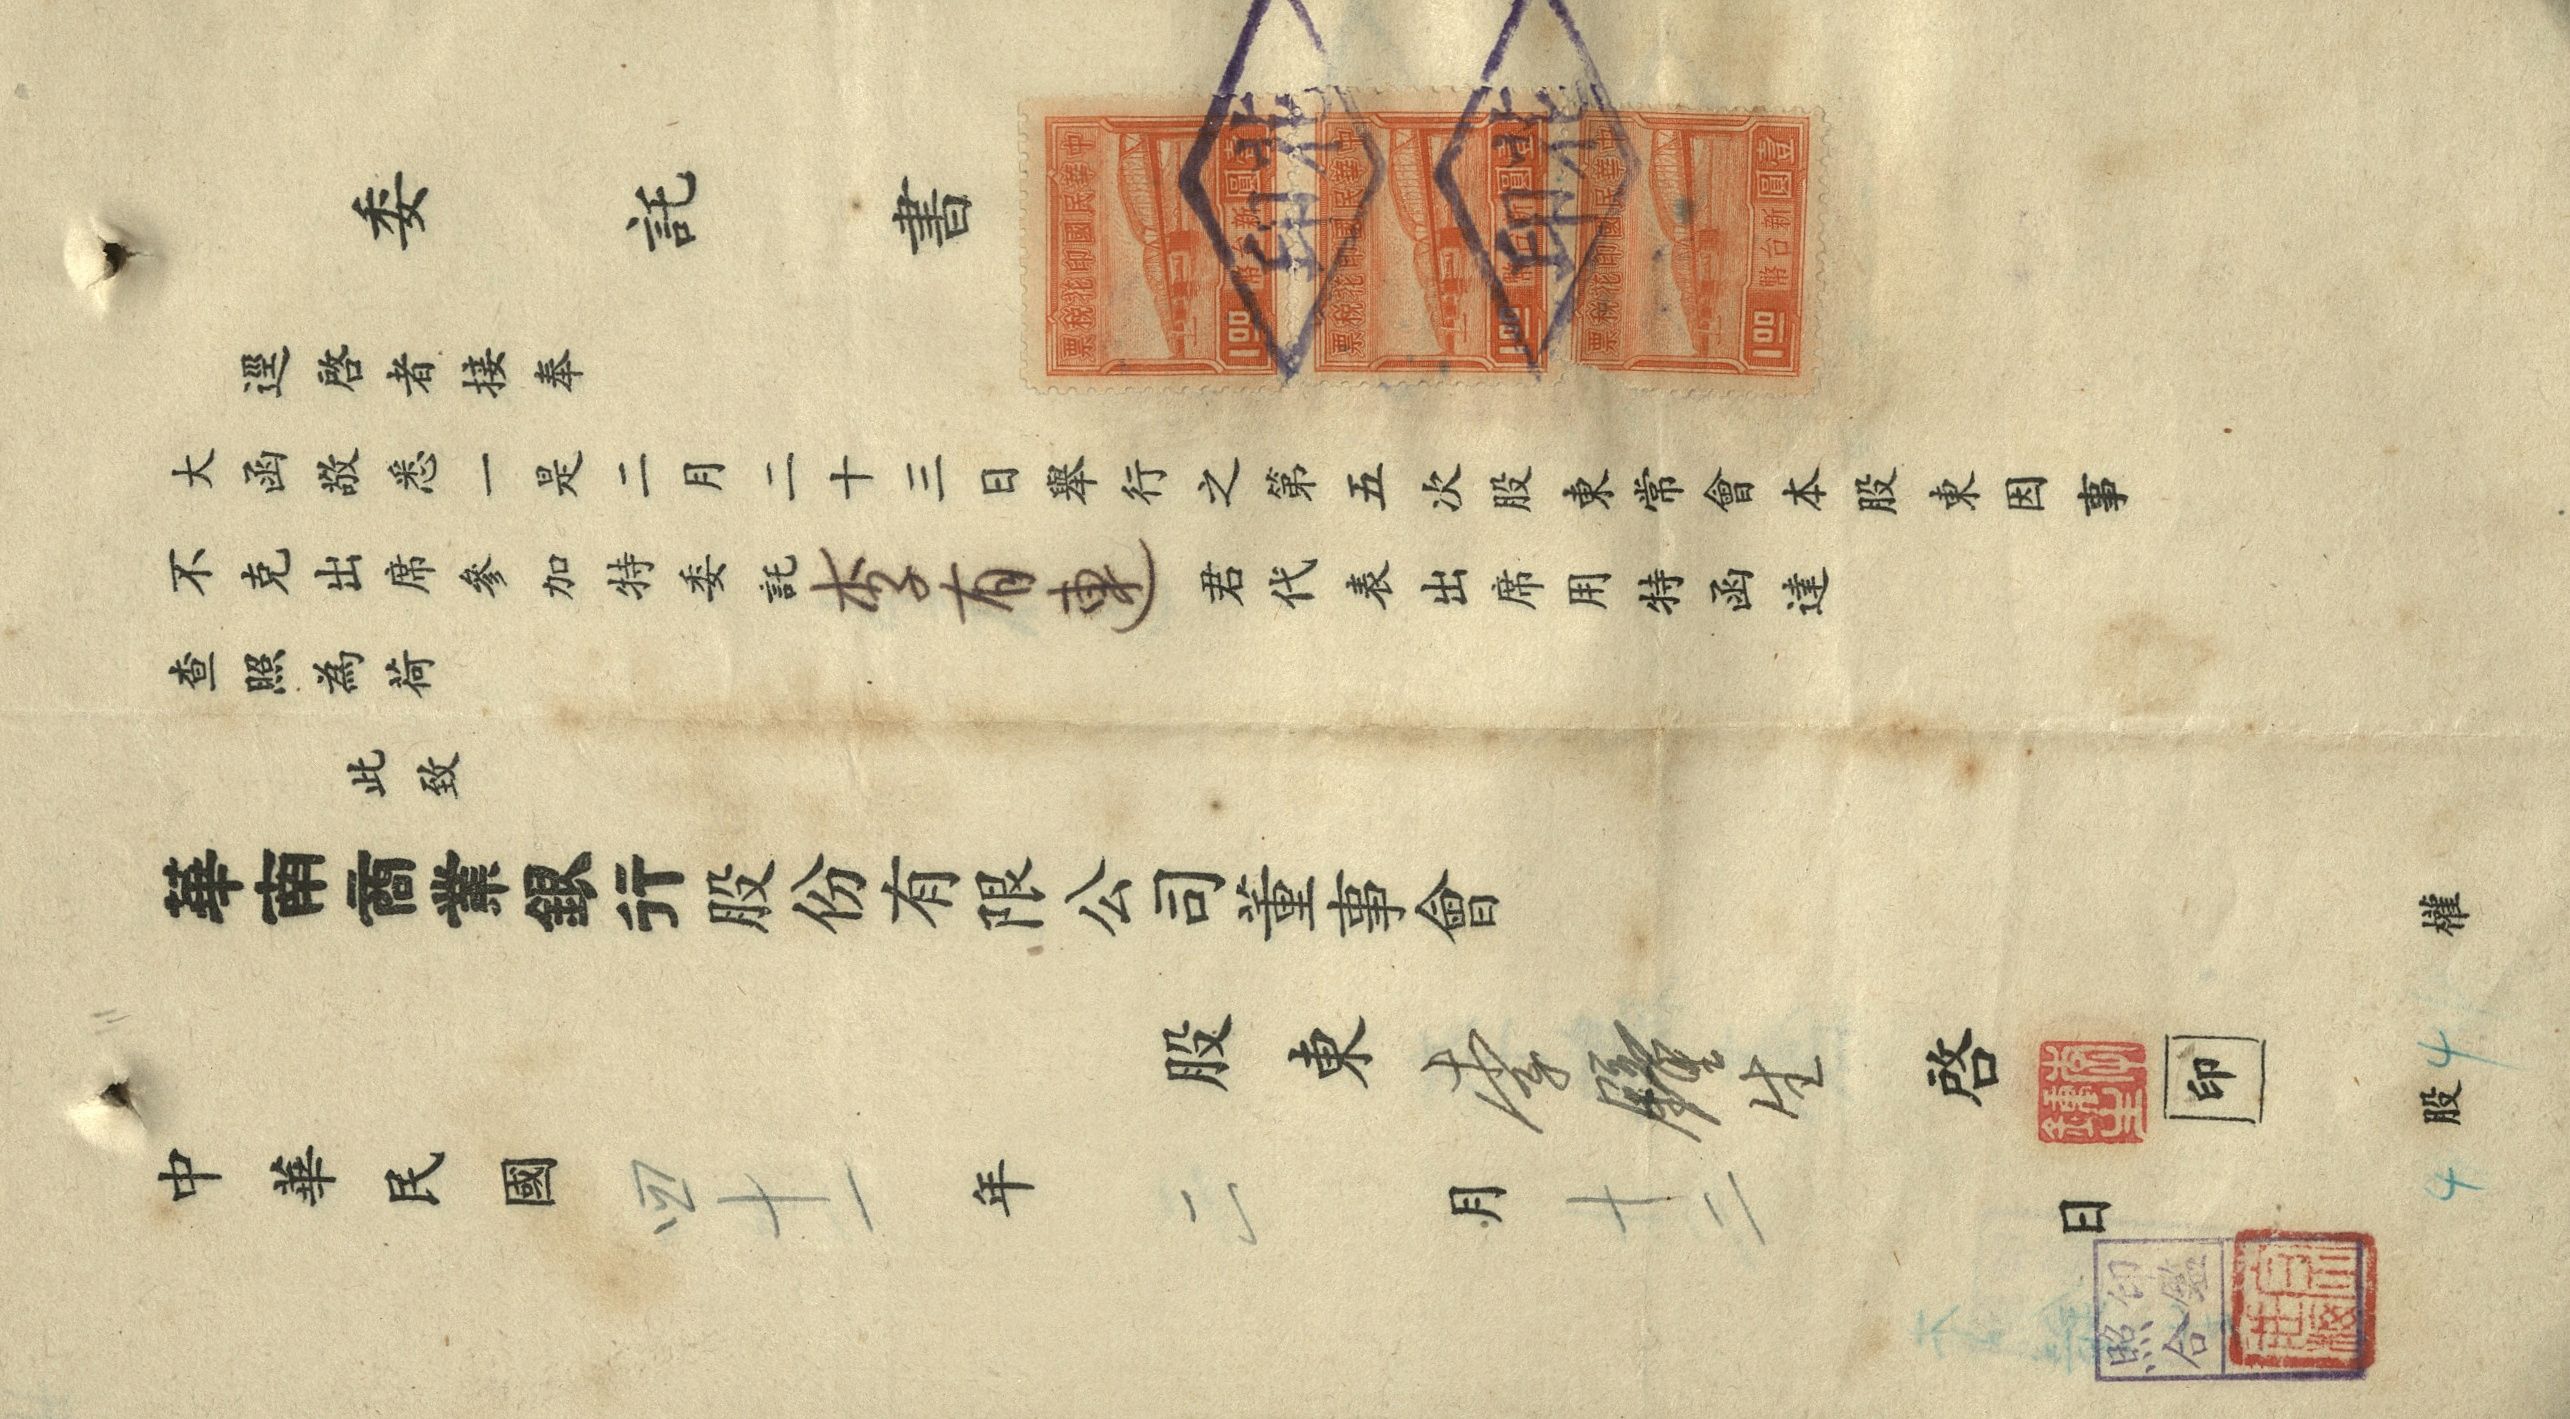 委託書
逕啓者接奉
大函敬悉一是二月二十三日舉行之第五次股東常會本股東因事
不克出席參加特委託李有連君代表出席用特函達
查照為荷
此致
華南商業銀行股份有限公司董事會
股東 李 生 啓 印
中華民國四十一年二月十二日
4股4權
中華民國印花稅票
壹圓新台幣
1.00
中華民國印花稅票
壹圓新台幣
1.00
中華民國印花稅票
壹圓新台幣
1.00
印鑑
照合